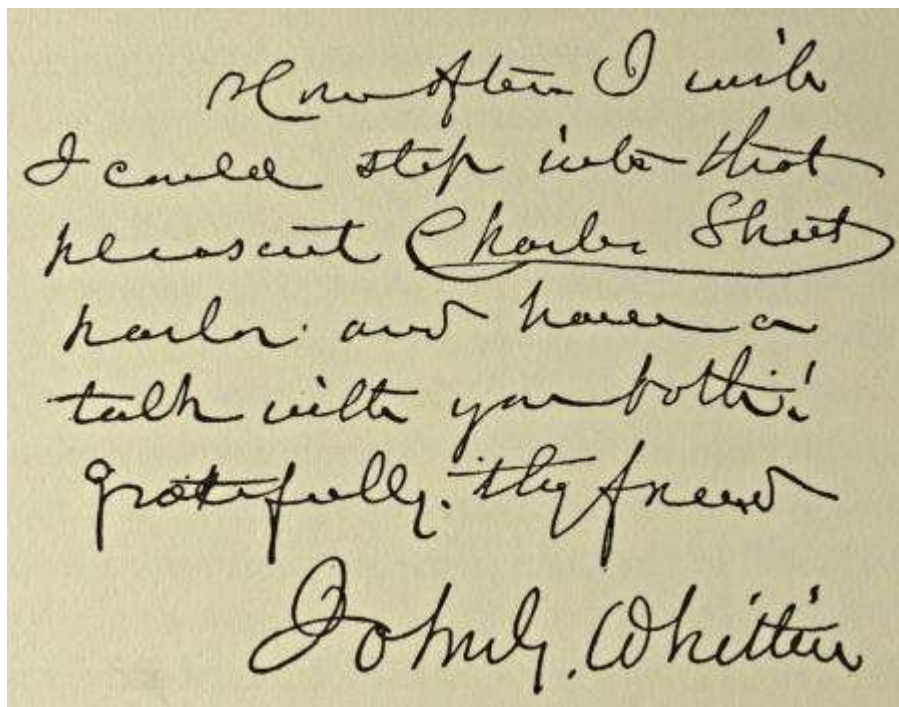 How often I wish
I could step into that
pleasant Charles Street
parlor and have a
talk with you both!
gratefully thy friend
John G. Whittier